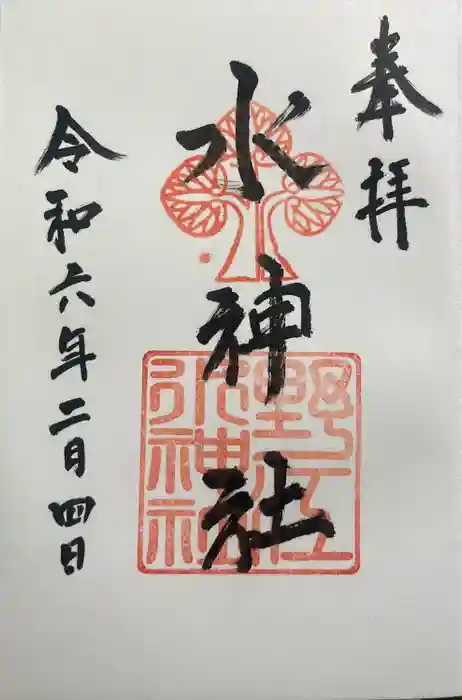 奉拝
水神社
令和六年二月四日
野江水神社